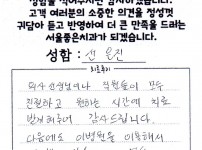 고객 여러분의 소중한 의견을 정성껏
귀담아 듣고 반영하여 더 큰 만족을 드리는
서울좋은치과가 되겠습니다.
성함 : 선
의사선생님이나 직원들이 모두
친절하고 원하는 시간에 치료
받게해주어 감사드립니다.
다음에도 이병원을 이용해서